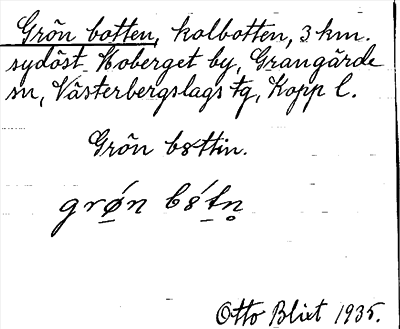 Grön botten, kolbotten, 3 km.
sydöst Moberget by, Grangärde
sn, Västerbergslags tg, Kopp l.
Grön bottin.
Otto Blixt 1935.